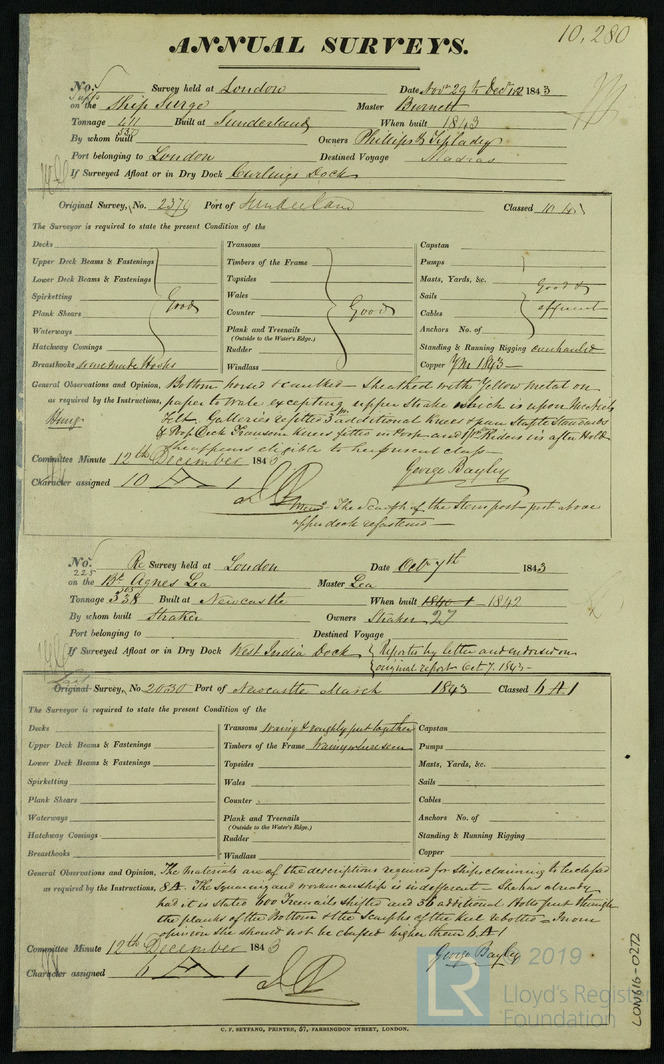 10,280
ANNUAL SURVEYS.
No. Survey held at London Date Nov 29th Dec 12 1843
on the Ship Surge Master Burnett
Tonnage 411 Built at Sunderland When built 1843
530
By whom built Owners Phillips & Tiplady
Port belonging to London Destined Voyage Madras
If Surveyed Afloat or in Dry Dock Curlings Dock
Original Survey, No. 2376 Port of Sunderland Classed 10 A 1
The Surveyor is required to state the present Condition of the
Decks Transoms Capstan
Upper Deck Beams & Fastenings Timbers of the Frame Pumps
Lower Deck Beams & Fastenings Topsides Masts, Yards, &c. Good &
Spirketting Good Wales Good Sails efficient
Plank Shears Counter Cables
Waterways Plank and Treenails Anchors No. of
(Outside to the Water's Edge.)
Hatchway Comings Rudder Standing & Running Rigging overhauled
Breasthooks some made Hooks Windlass Copper YM 1843
General Observations and Opinion, Bottom horsed & caulked - Sheathed with Yellow Metal on
as required by the Instructions, paper to wale excepting upper Strake which is upon
Felt Galleries refitted 3 additional Knees & Staple Standards
Poop Deck Transom Knees fitted in Poop and Riders in after Hold
She appears eligible to her present class
Committee Minute 12th December 1843 George Bayley
Character assigned 10 A 1
The Scarph of the Stern post just above
upper deck refastened
No. Re Survey held at London Date Oct 7th 1843
225
on the Bk Agnes Lea Master Lea
Tonnage 338 Built at Newcastle When built 1840-1 1842
By whom built Straker Owners Straker 27
Port belonging to Destined Voyage
If Surveyed Afloat or in Dry Dock West India Dock Reported by letter and endorsed on
original report Oct 7. 1843
Original Survey, No 2030 Port of Newcastle March 1843 Classed 6 A 1
The Surveyor is required to state the present Condition of the
Decks Transoms wainy & roughly put together Capstan
Upper Deck Beams & Fastenings Timbers of the Frame Wainy where seen Pumps
Lower Deck Beams & Fastenings Topsides Masts, Yards, &c.
Spirketting Wales Sails
Plank Shears Counter Cables
Waterways Plank and Treenails Anchors No. of
(Outside to the Water's Edge.)
Hatchway Comings Rudder Standing & Running Rigging
Breasthooks Windlass Copper
General Observations and Opinion, The materials are of the descriptions required for Ships claiming to be classed
as required by the Instructions, 8 A. The squaring and workmanship is indifferent - She has already
had it is stated 600 Treenails shifted and 36 additional Bolts put through
the planks of the Bottom & the Scarphs of the keel rebolted - In our
opinion she should not be classed higher than 6 A 1
Committee Minute 12th December 1843 George Bayley
Character assigned 6 A 1
C. F. SEYFANG, PRINTER, 57, FARRINGDON STREET, LONDON.
LR
© 2019
Lloyd's Register
Foundation
LON616-0272